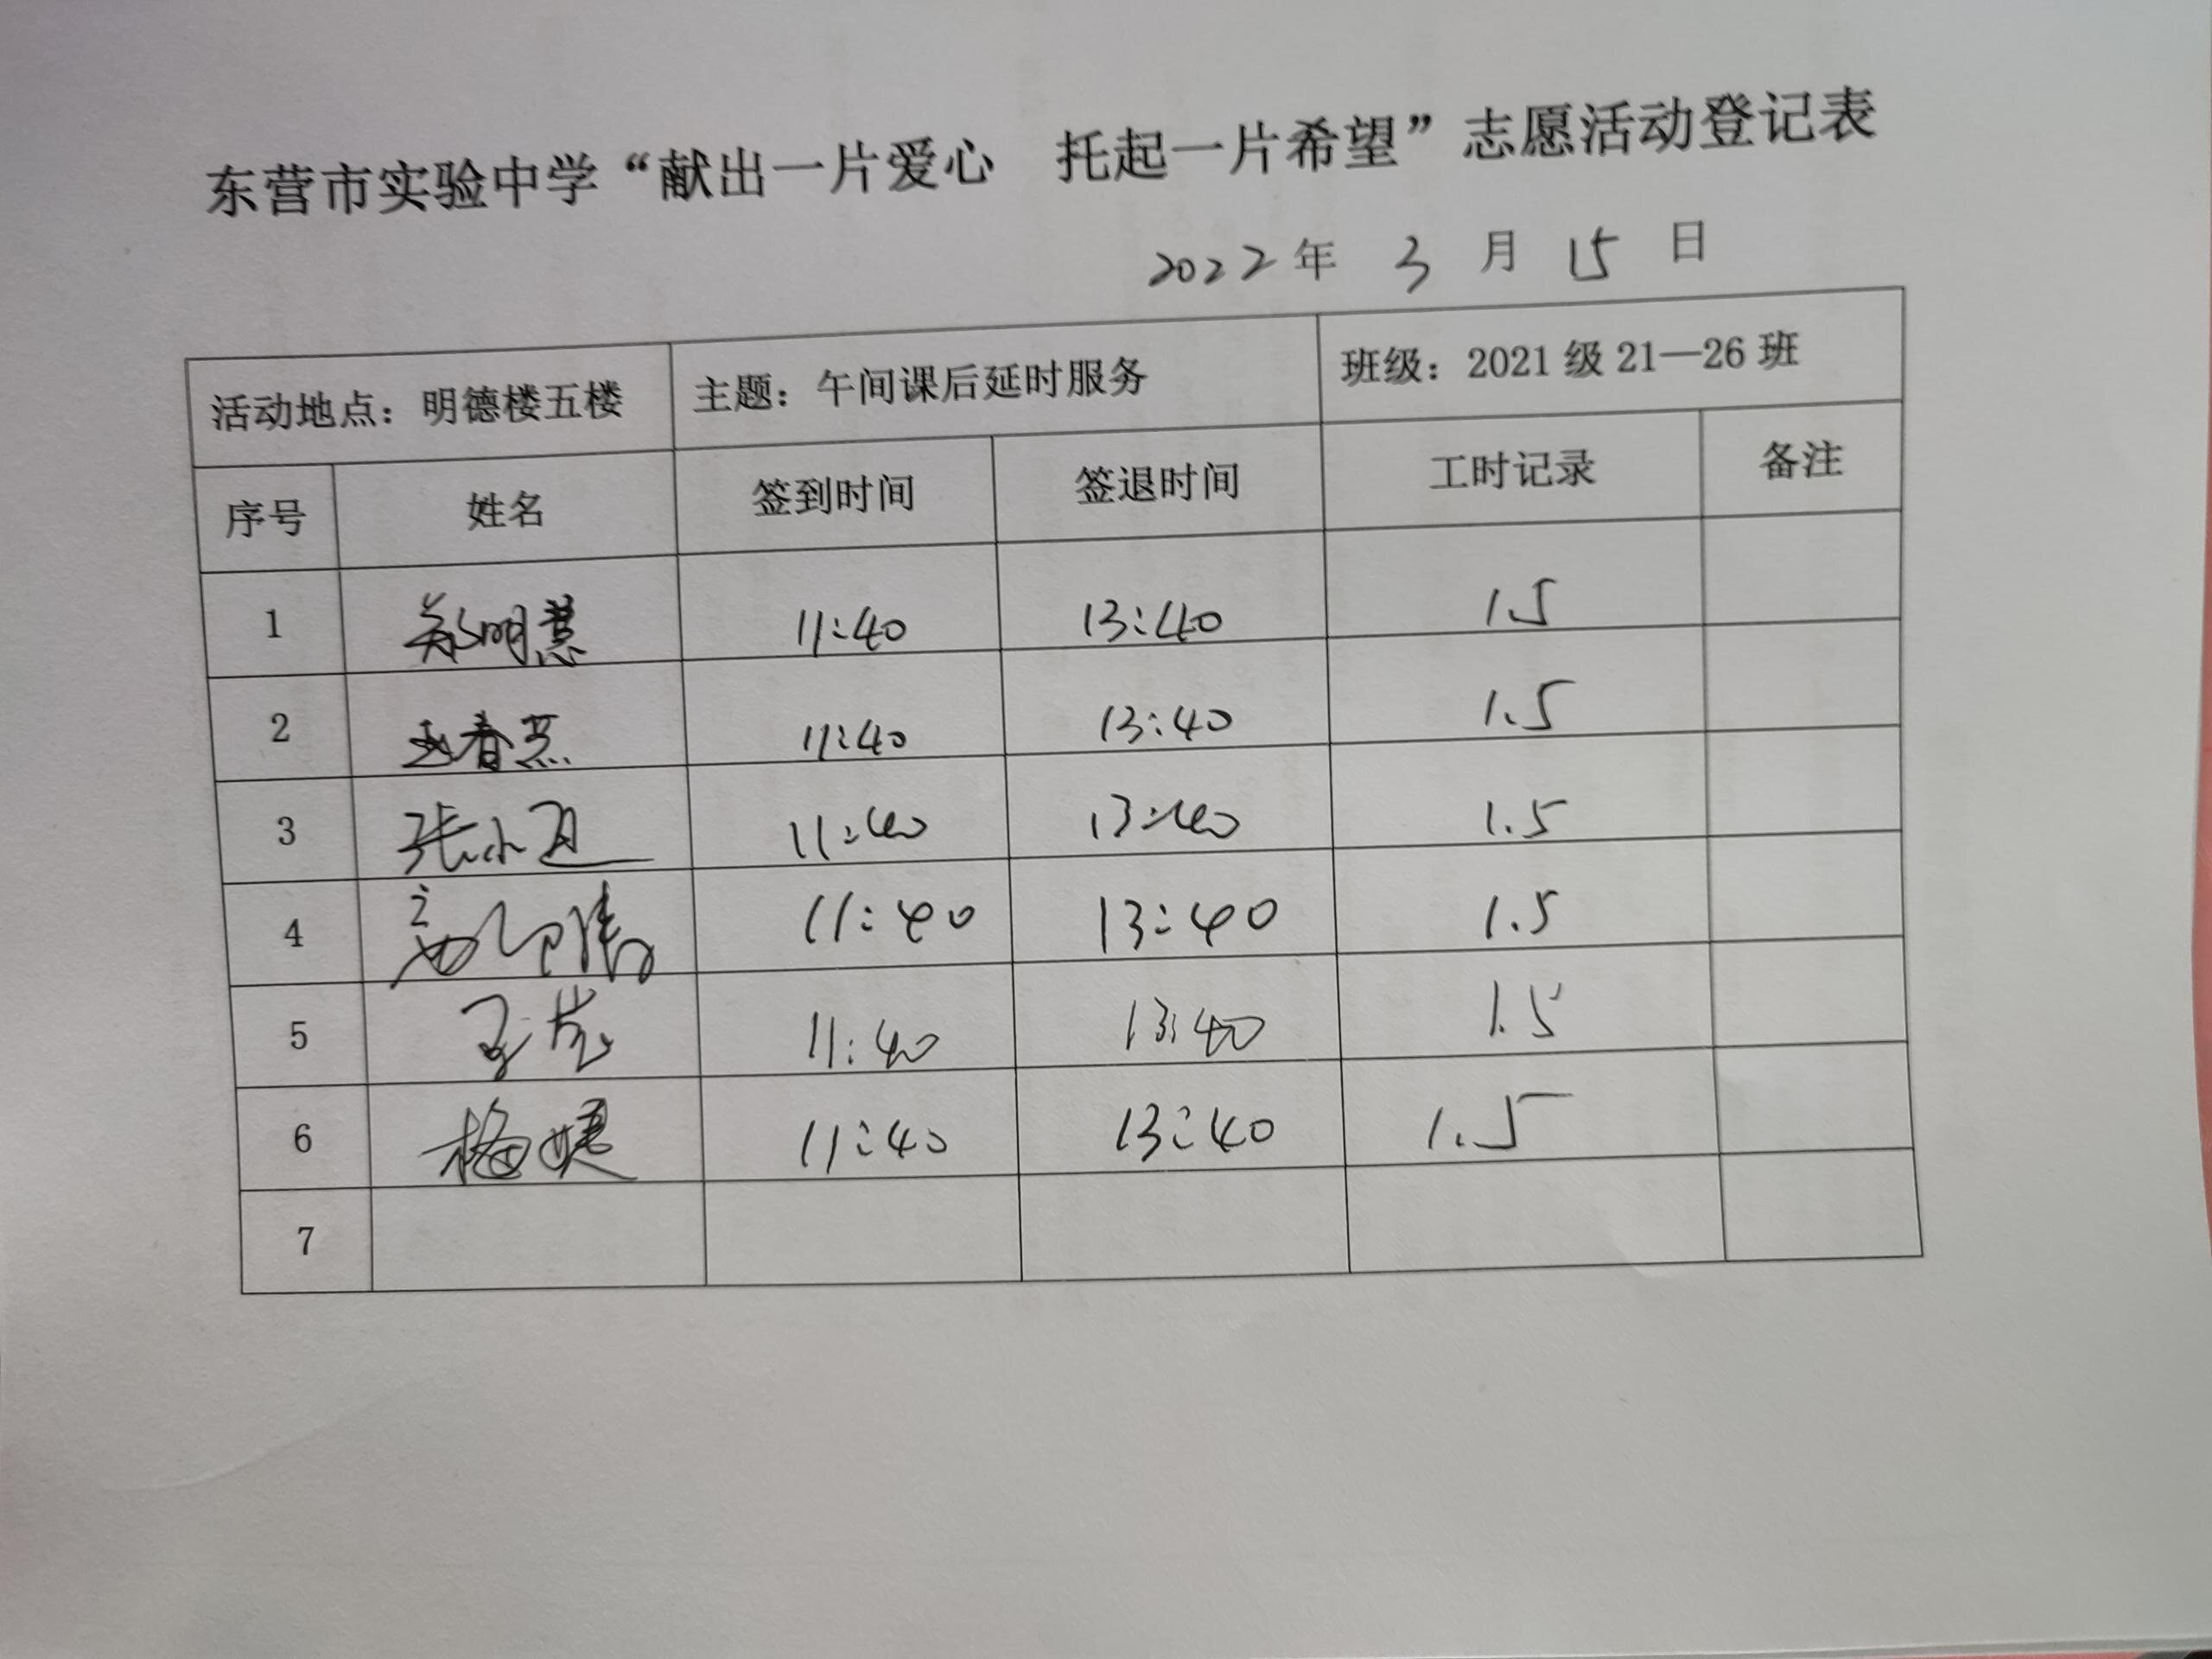 东营市实验中学“献出一片爱心 托起一片希望”志愿活动登记表
2022年 3 月 15 日
活动地点：明德楼五楼 主题：午间课后延时服务 班级：2021级21—26班
序号 姓名 签到时间 签退时间 工时记录 备注
1 郑明慧 11:40 13:40 1.5
2 春燕 11:40 13:40 1.5
3 张小 11:40 13:40 1.5
4 11:40 13:40 1.5
5 11:40 13:40 1.5
6 梅 11:40 13:40 1.5
7